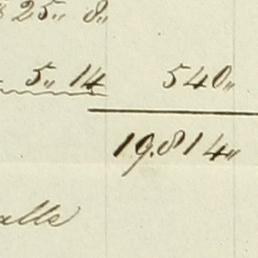 25,, 8,,
5,, 14 540,,
19.814,,
alle